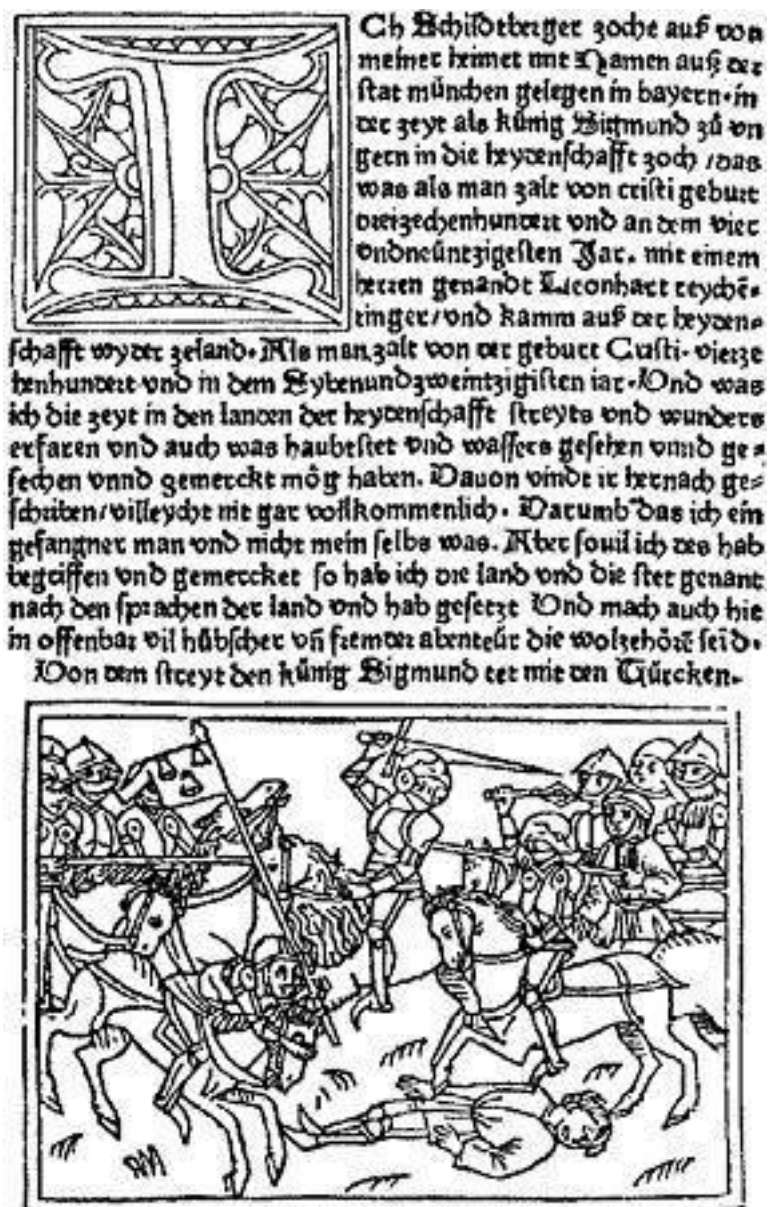 ICh Schildtberger zoche auß von
meiner heimet mit Namen auß der
stat münchen gelegen in bayern. in
der zeyt als künig Sigmund zů vn
gern in die heydenschafft zoch / das
was als man zalt von cristi geburt
dreizechenhundert vnd an dem vier
vndneüntzigesten Jar. mit einem
herren genandt Lieonhart reychē-
tinger / vnd kamm auß der heyden-
schafft wyder zeland. Als man zalt von der geburt Cristi. vierze
henhundert vnd in dem Sybenundzweintzigisten iar. Vnd was
ich die zeyt in den landen der heydenschafft streyts vnd wunders
erfaren vnd auch was haubtstet vnd wassers gesehen vnnd ge-
sechen vnnd gemerckt mög haben. Dauon vindt ir hernach ge-
schriben / villeycht nit gar volkommenlich. Darumb das ich ein
gefangner man vnd nicht mein selbs was. Aber souil ich des hab
begriffen vnd gemercket so hab ich die land vnd die stet genant
nach den sprachen der land vnd hab gesetzt Vnd mach auch hie
in offenbar vil hübscher vn̄ fremder abenteür die wolzehörē seid.
Von dem streyt den künig Sigmund tet mit den Türcken.